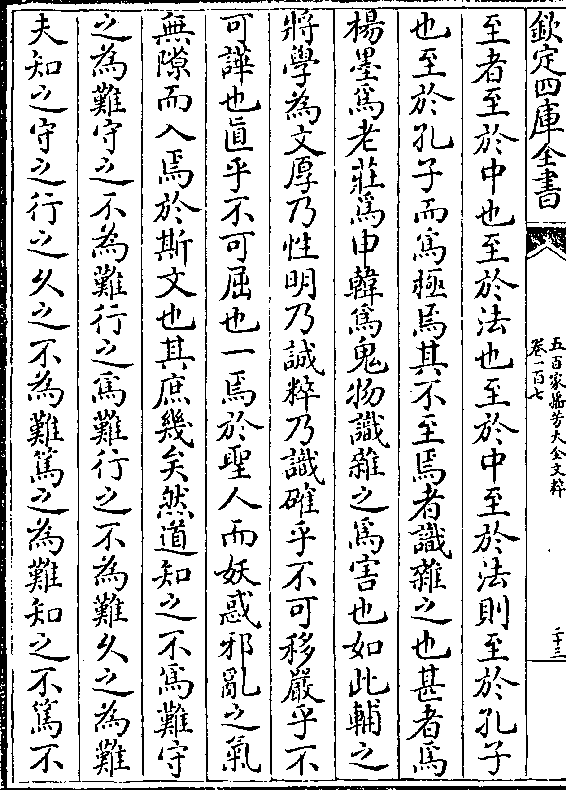 欽定四庫全書
五百家播芳大全文粹
卷一百七
二十三
至者至於中也至於法也至於中至於法則至於孔子
也至於孔子而爲極焉其不至焉者識雜之也甚者爲
楊墨爲老莊爲申韓爲鬼物識雜之爲害也如此輔之
將學為文厚乃性明乃誠粹乃識確乎不可移嚴乎不
可譁也直乎不可屈也一焉於聖人而妖惑邪亂之氣
無隙而入焉於斯文也其庶幾矣然道知之不爲難守
之為難守之不為難行之爲難行之不為難久之為難
夫知之守之行之久之不為難篤之為難知之不篤不